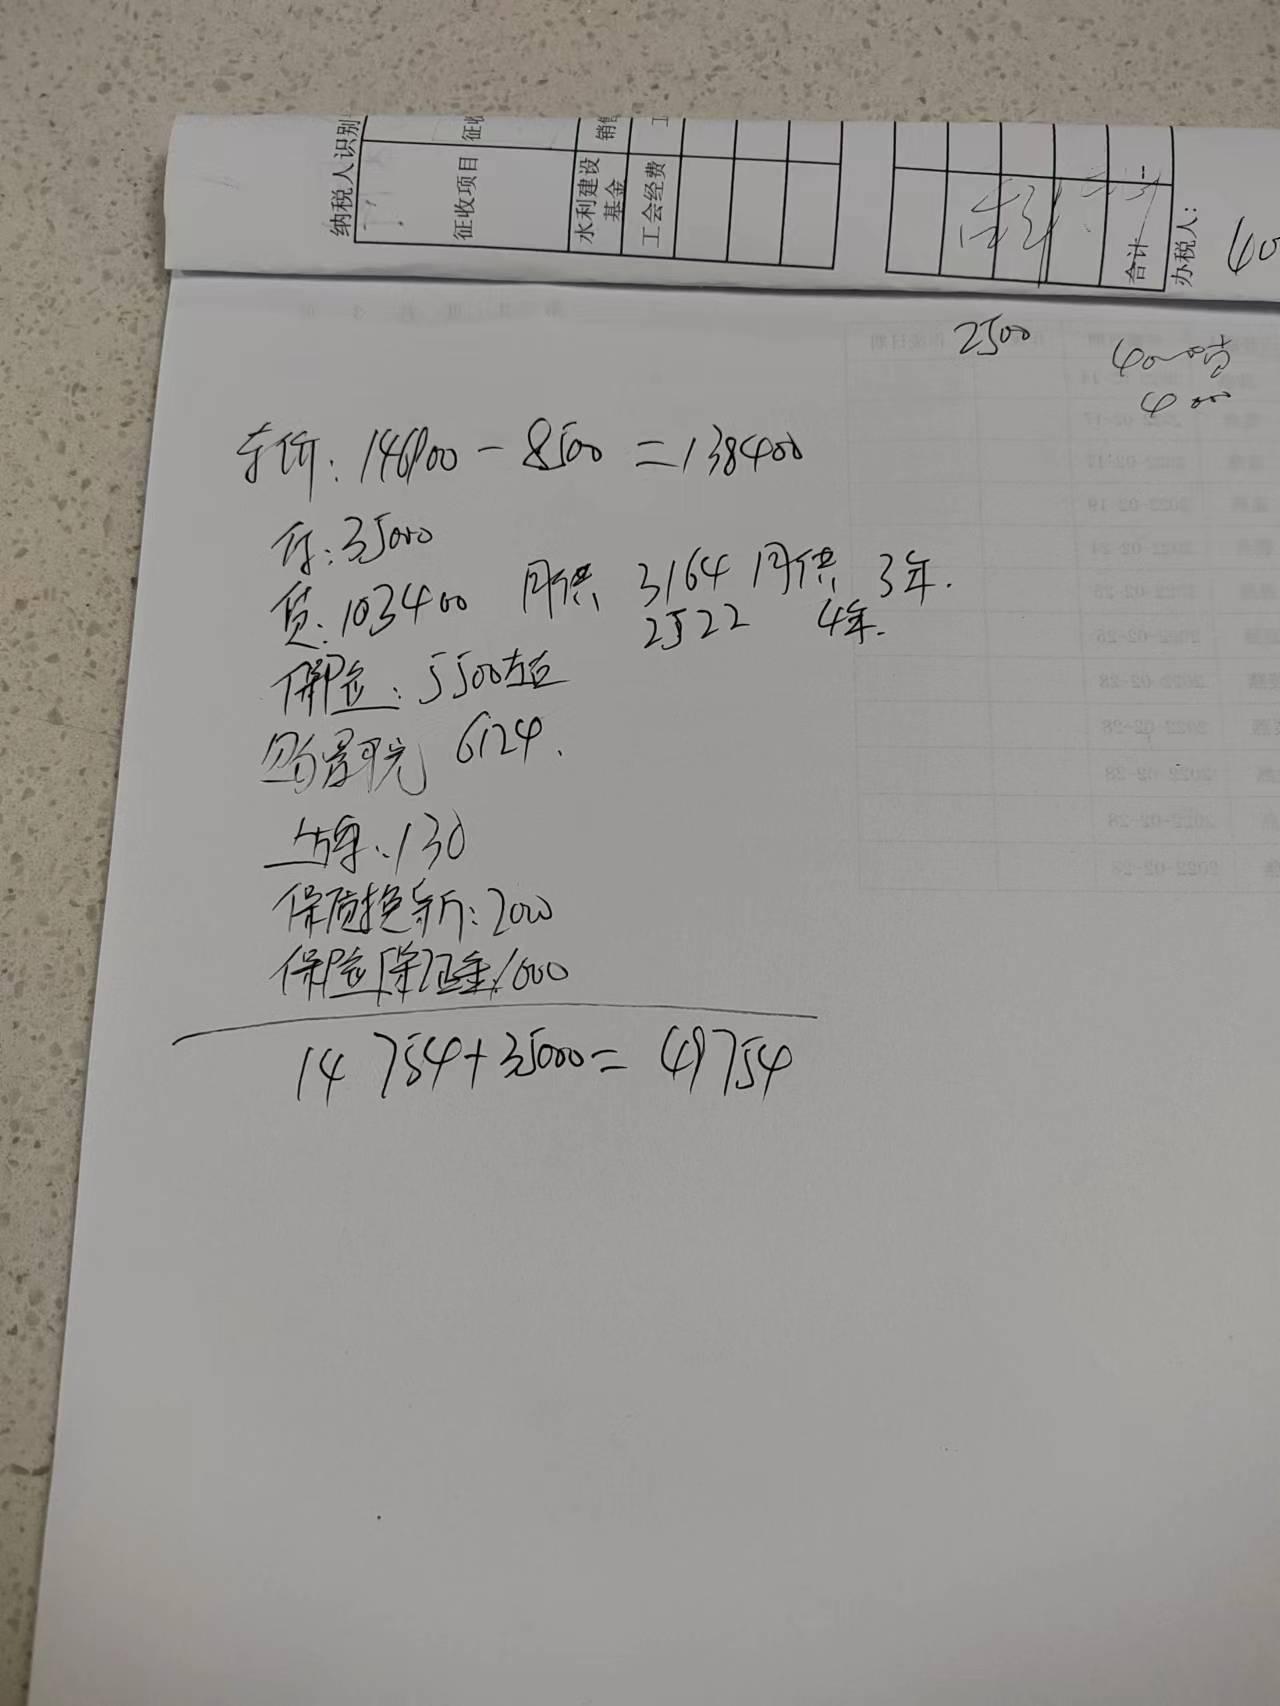 纳税人识别
征收项目
征收
水利建设
基金
销售
工会经费
工
合计
办税人:
40
2500
4000
车价: 146900 - 8500 = 138400
付: 35000
贷: 103400 月供 3164 月供 3年.
2522 4年.
保险: 5500左右
购置税 6124.
上牌: 130
保质换新: 2000
保险保证金: 1000
14754 + 35000 = 49754